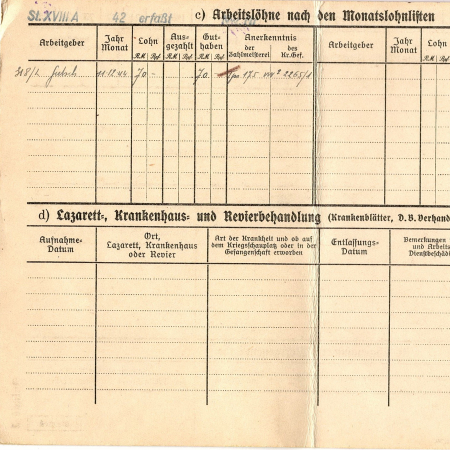 St. XVIII A 42 erfaßt c) Arbeitslöhne nach den Monatslohnlisten
Arbeitgeber Jahr Monat Lohn R.M. Rpf. Ausgezahlt R.M. Rpf. Guthaben R.M. Rpf. Anerkenntnis der Zahlmeisterei des Kr.Gef. Arbeitgeber Jahr Monat Lohn R.M. Rpf.
318/L 11-12.44 70 - 70 - 175
d) Lazarett-, Krankenhaus- und Revierbehandlung (Krankenblätter, D.B. Verhand
Aufnahme-Datum
Ort, Lazarett, Krankenhaus oder Revier
Art der Krankheit und ob auf dem Kriegsschauplatz oder in der Gefangenschaft erworben
Entlassungs-Datum
Bemerkungen und Arbeits Dienstbeschädi